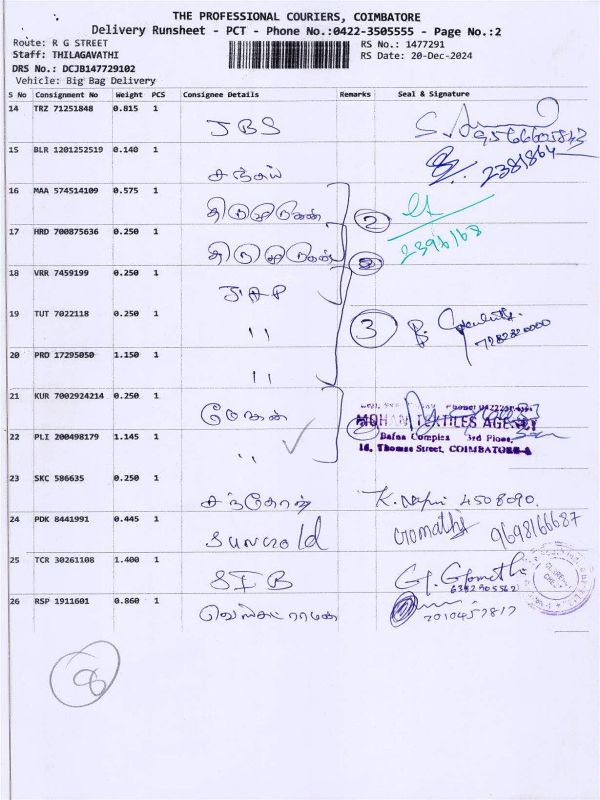 THE PROFESSIONAL COURIERS, COIMBATORE
Delivery Runsheet - PCT - Phone No.:0422-3505555 - Page No.:2
Route: R G STREET
RS No.: 1477291
Staff: THILAGAVATHI
RS Date: 20-Dec-2024
DRS No.: DCJB147729102
Vehicle: Big Bag Delivery
S No Consignment No Weight PCS Consignee Details Remarks Seal & Signature
14 TRZ 71251848 0.815 1 JBS 9566605843
15 BLR 1201252519 0.140 1 சஞ்சய் 2381864
16 MAA 574514109 0.575 1 திருமுருகன் 2
17 HRD 700875636 0.250 1 திருமுருகன் 2396168
18 VRR 7459199 0.250 1 JAP
19 TUT 7022118 0.250 1 " 3 7282820000
20 PRO 17295050 1.150 1 "
21 KUR 7002924214 0.250 1 மோகன்
MOHAN TEXTILES AGENCY
22 PLI 200498179 1.145 1 "
Bafna Complex 3rd Floor,
16, Thomas Street, COIMBATORE-1
23 SKC 586635 0.250 1 சந்தோஷ் 4508090
24 PDK 8441991 0.445 1 Sunworld Gomathi 9698166687
25 TCR 30261108 1.400 1 SIB G. Gomathi
6382905562
26 RSP 1911601 0.860 1 வெங்கட்ராமன் 7010457817
8